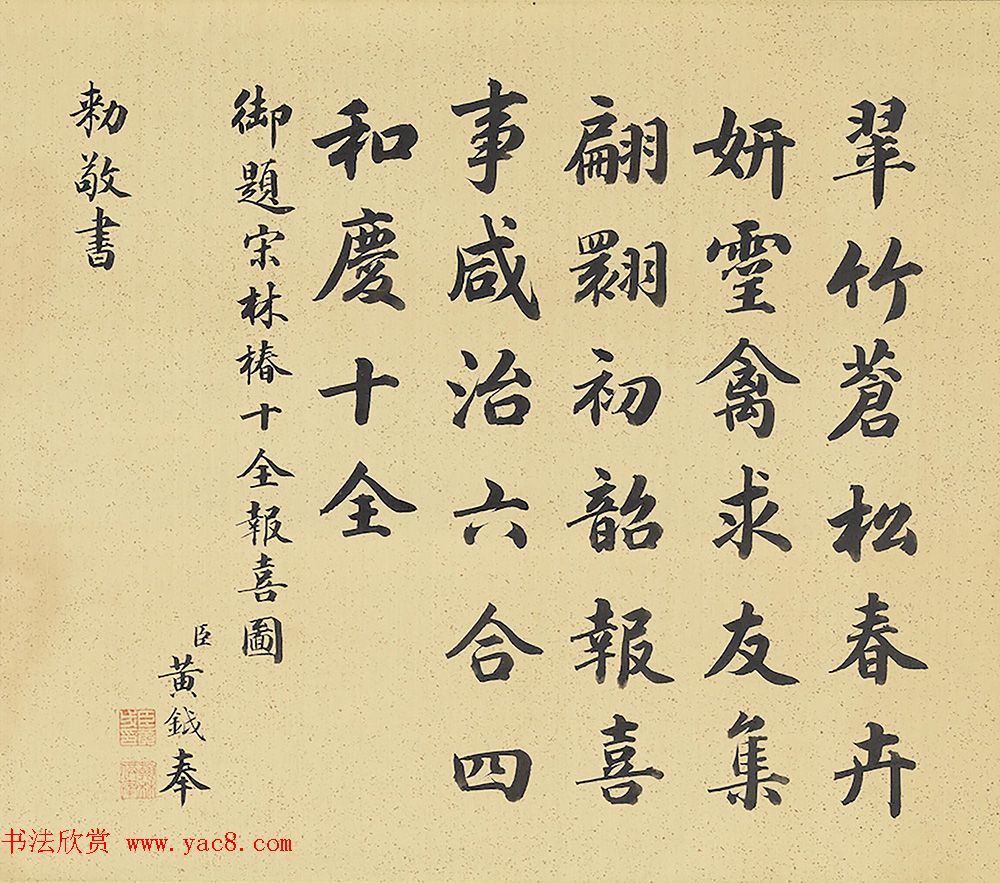 翠竹蒼松春卉
妍靈禽求友集
翩翾初韶報喜
事咸治六合四
和慶十全
御題宋林椿十全報喜圖
臣黃鉞奉
勅敬書
书法欣赏 www.yac8.com